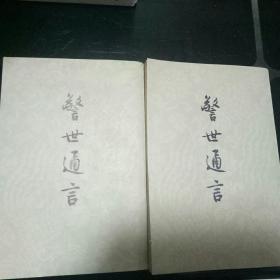 警世通言
警世通言